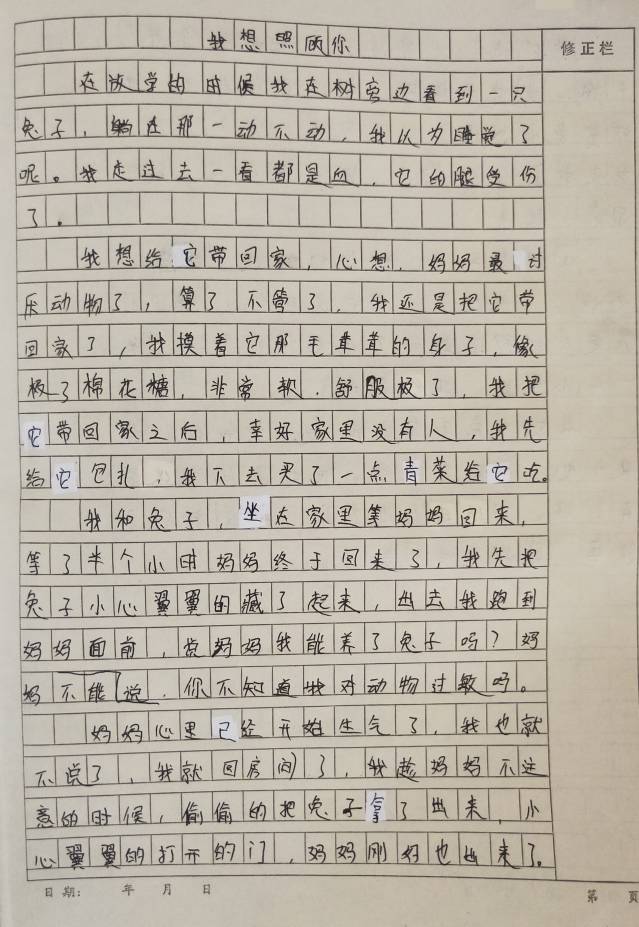 我想照顾你
修正栏
在放学的时候我在树旁边看到一只
兔子，躺在那一动不动，我以为睡觉了
呢。我走过去一看都是血，它的腿受伤
了。
我想给它带回家，心想，妈妈最讨
厌动物了，算了不管了，我还是把它带
回家了，我摸着它那毛茸茸的身子，像
极了棉花糖，非常软，舒服极了，我把
它带回家之后，幸好家里没有人，我先
给它包扎，我下去买了一点青菜给它吃。
我和兔子，坐在家里等妈妈回来，
等了半个小时妈妈终于回来了，我先把
兔子小心翼翼的藏了起来，出去我跑到
妈妈面前，说妈妈我能养了兔子吗？妈
妈不能说，你不知道我对动物过敏吗。
妈妈心里已经开始生气了，我也就
不说了，我就回房间了，我趁妈妈不注
意的时候，偷偷的把兔子拿了出来，小
心翼翼的打开的门，妈妈刚好也出来了。
日期： 年 月 日
第 页